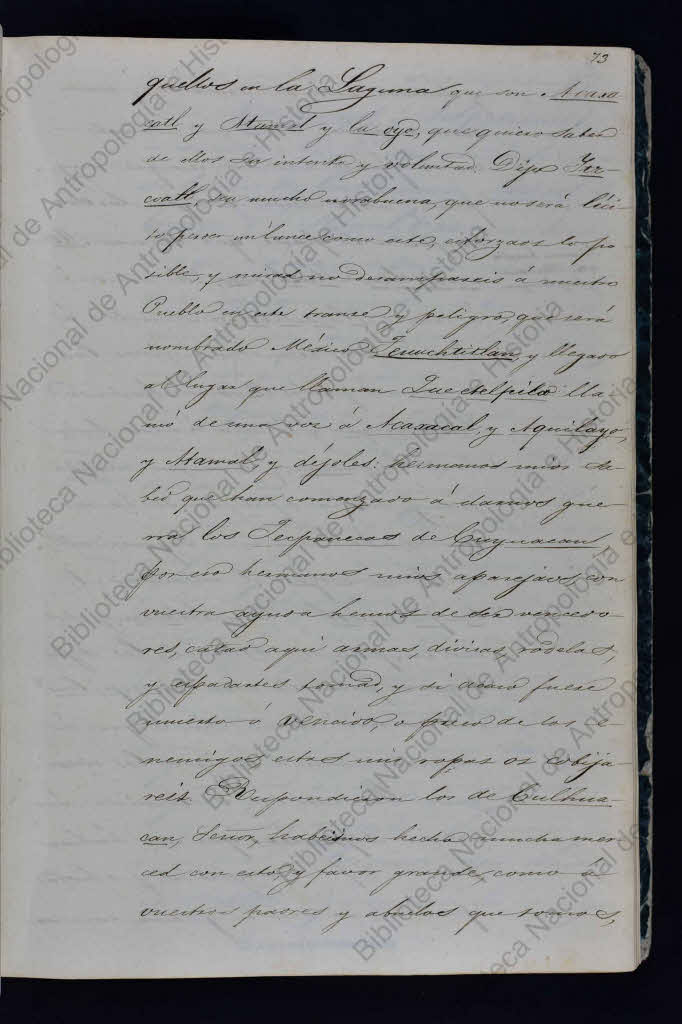 73
quellos en la Laguna que son Acaxa
catl y Atamal y la oyo, que quiero saber
de ellos su intento y voluntad. Dijo Itz-
coatl, sea mucho norabuena, que no será lici
to perder un lance como este, esforzaos lo po
sible, y mirad no desampareis á nuestro
Pueblo en este transe y peligro, que será
nombrado México Tenuchtitlan, y llegado
al lugar que llaman Tlachtelpilco lla
mó de una voz á Acaxacal, y Aquilayo,
y Atamal, y díjoles: hermanos mios sa-
bed que han comenzado á darnos guer
ra los Tecpanecas de Cuyuacan,
por eso hermanos mios aparejaos, con
vuestra ayuda hemos de ser vencedo
res, catad aqui armas, divisas, rodelas,
y espadartes tomad, y si acaso fuere
muerto ó vencido, o preso de los e-
nemigos, estas mis ropas os cobija
reis. Respondieron los de Culhua-
can, Señor, habeisnos hecho mucha mer
ced con esto, y favor grande, como á
vuestros padres y abuelos que somos,
Biblioteca Nacional de Antropología e Historia